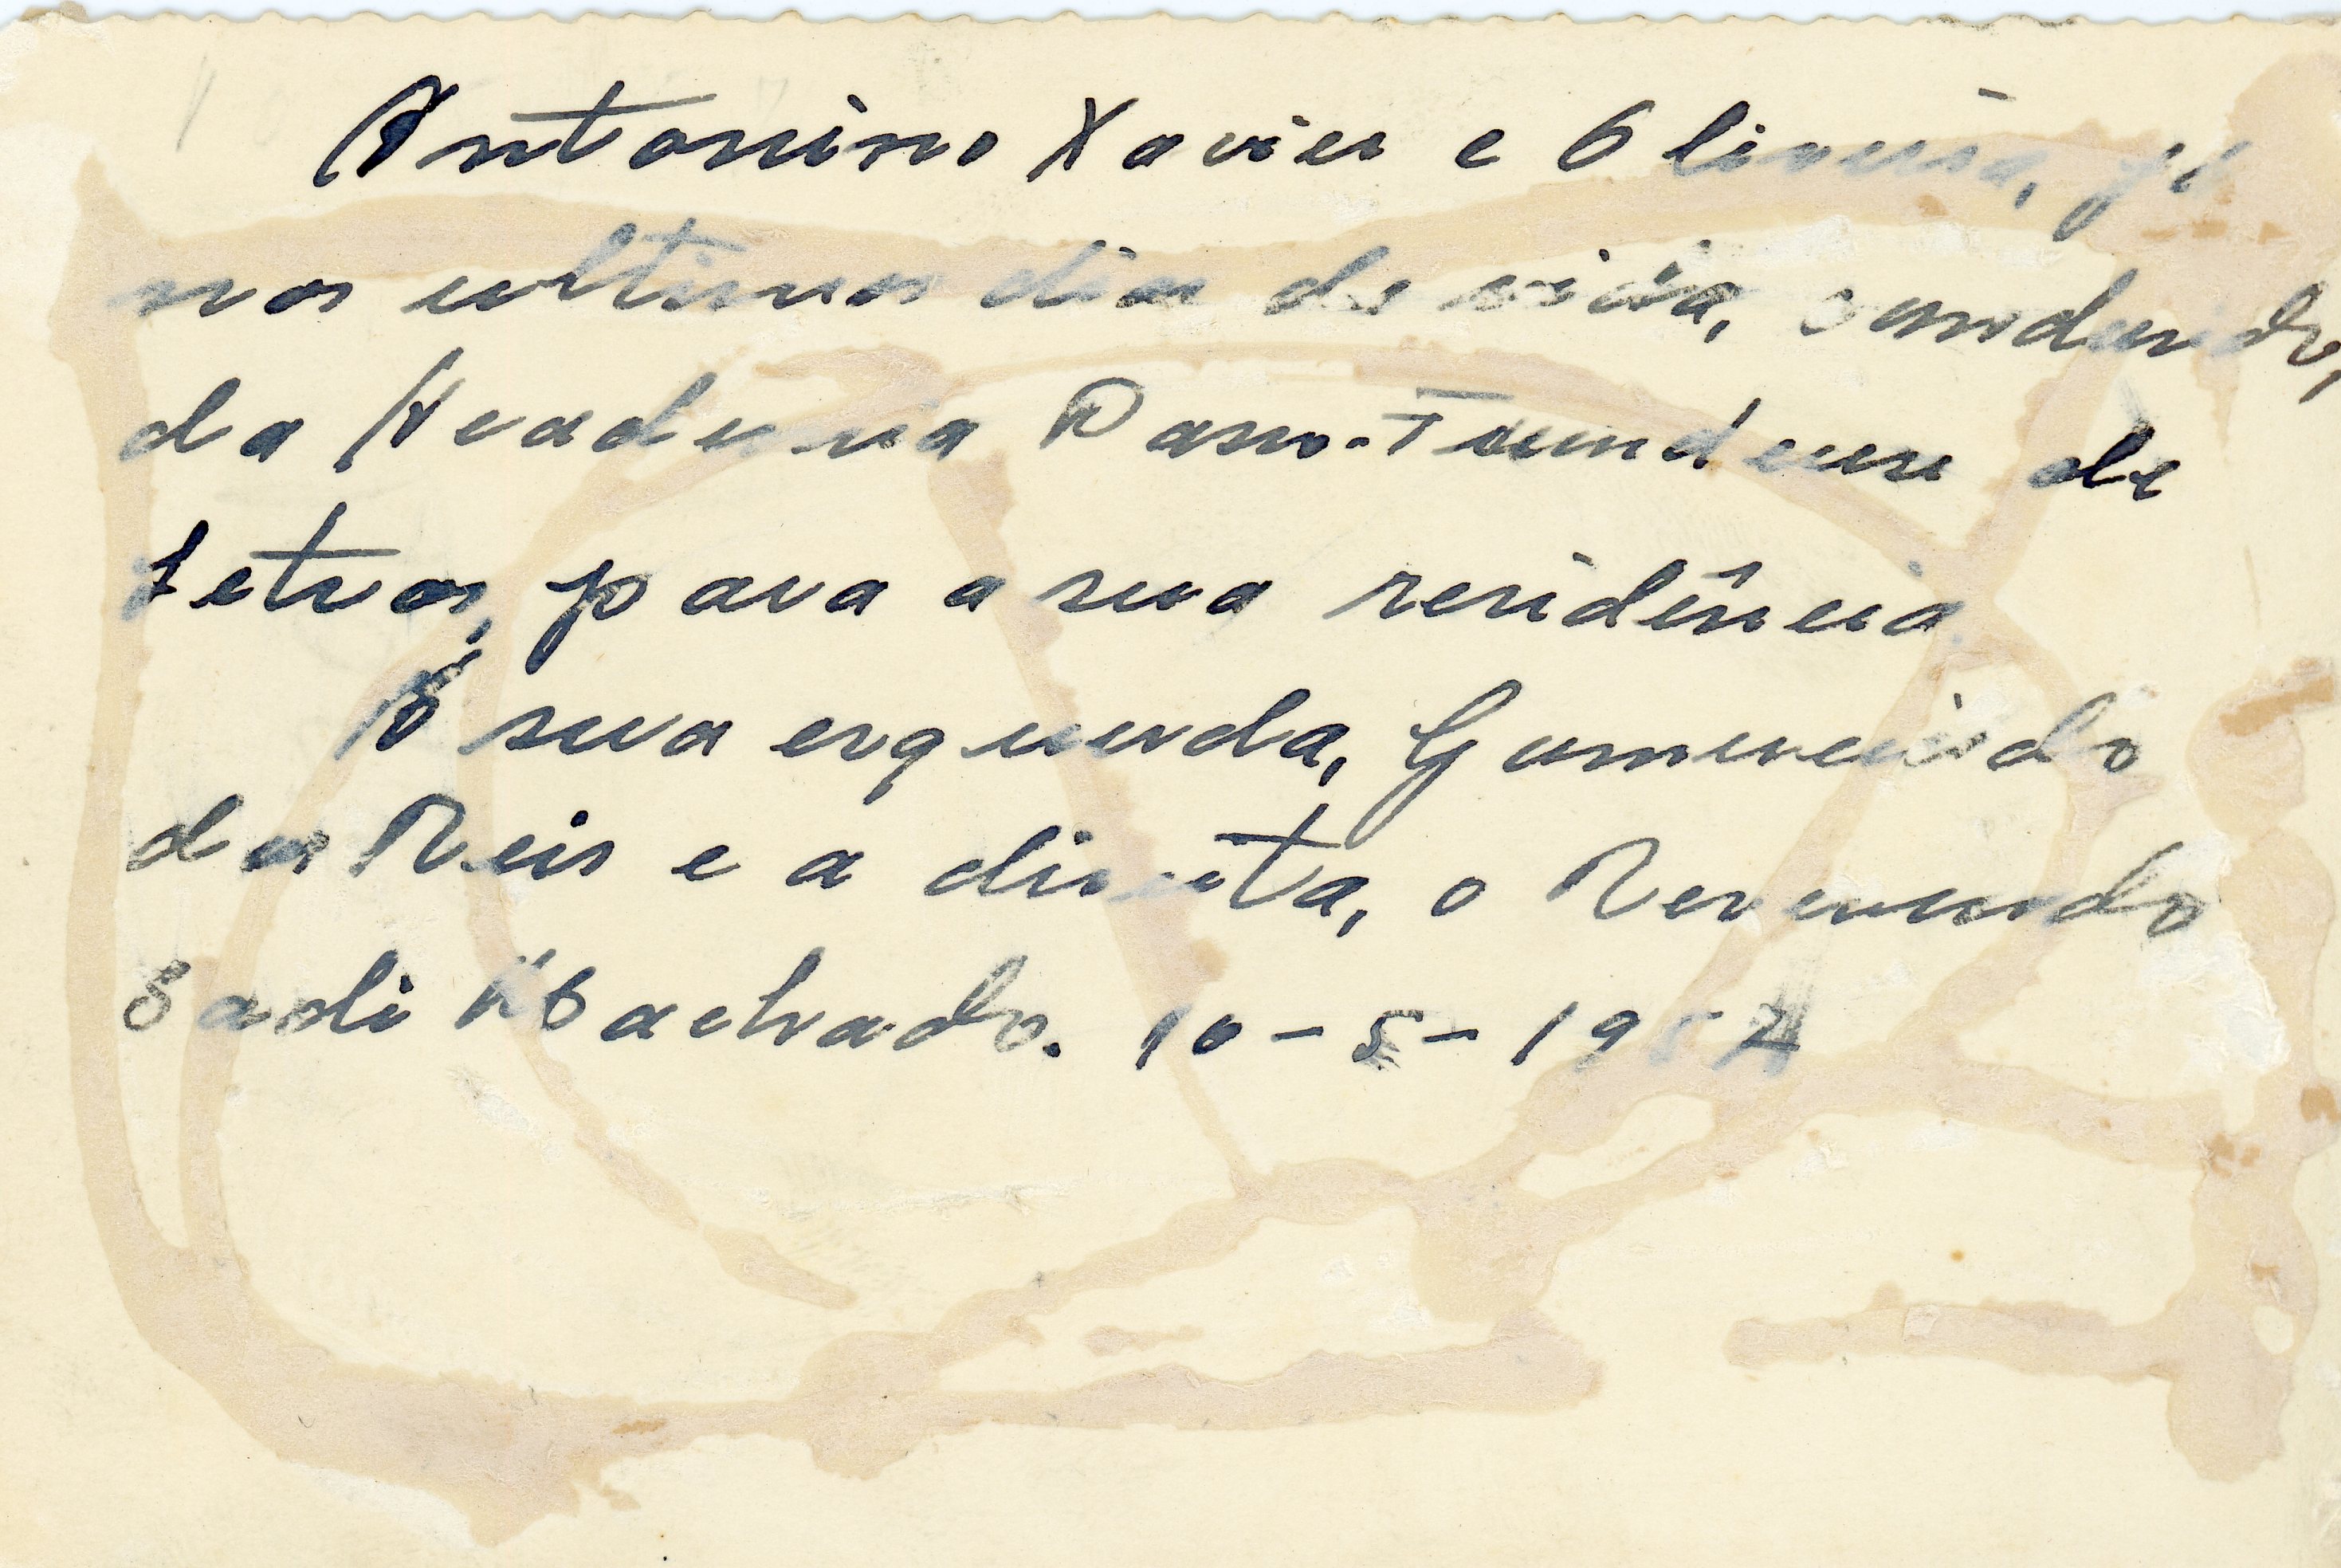 Antonino Xavier e Oliveira, já
nos ultimos dias de vida, conduzido,
da Academia Passo-Fundense de
Letras, para a sua residência
À sua esquerda, Gumercindo
dos Reis e a direita, o Reverendo
Sadi Machado. 10-5-195